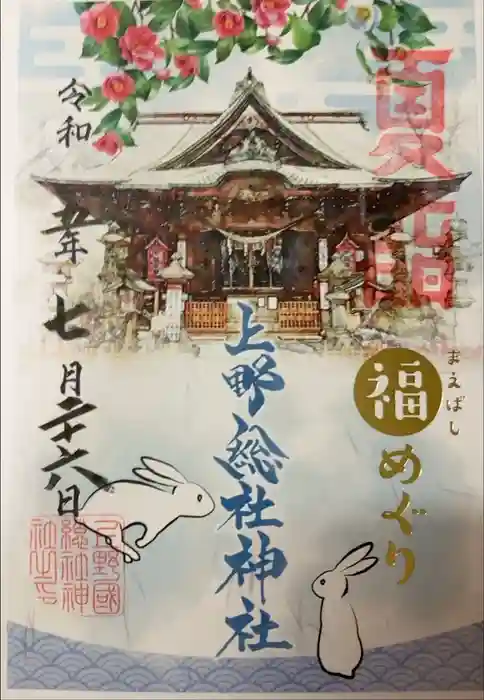 夏詣
まえばし
福めぐり
上野総社神社
令和五年七月二十六日
上野國
總社神
社之印